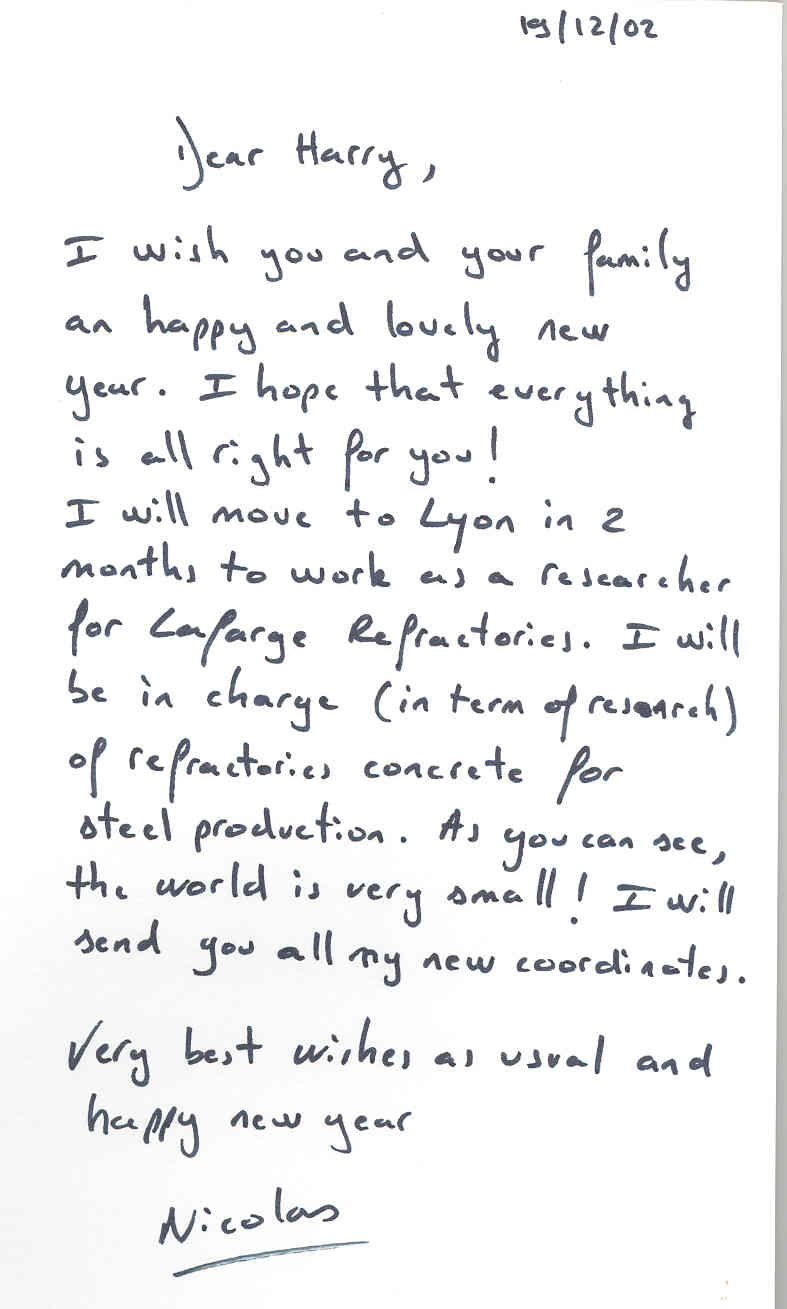 19/12/02
Dear Harry,
I wish you and your family
an happy and lovely new
year. I hope that everything
is all right for you!
I will move to Lyon in 2
months to work as a researcher
for Lafarge Refractories. I will
be in charge (in term of research)
of refractories concrete for
steel production. As you can see,
the world is very small! I will
send you all my new coordinates.
Very best wishes as usual and
happy new year
Nicolas